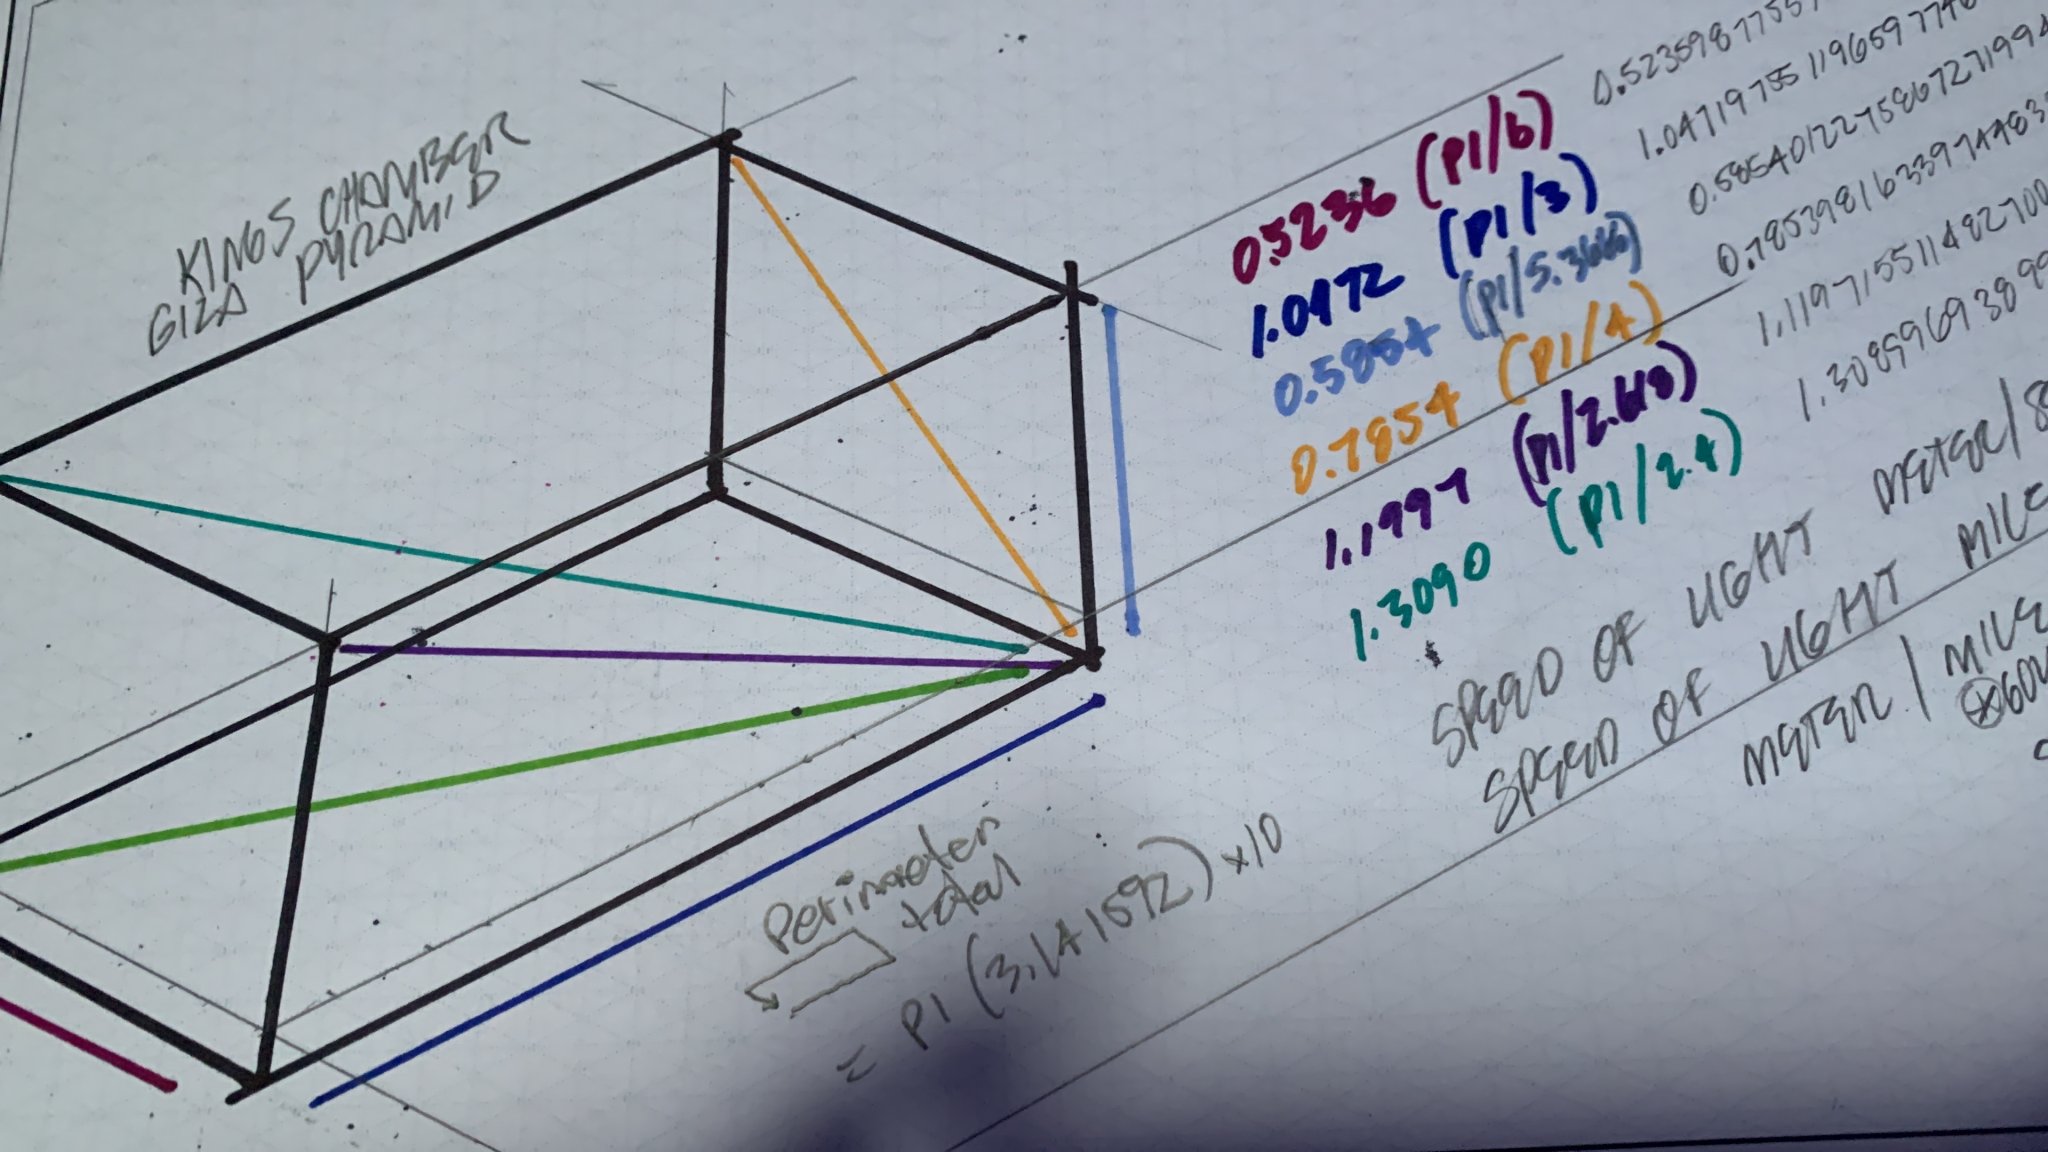 KINGS CHAMBER
GIZA PYRAMID
0.5236 (PI/6)
1.0472 (PI/3)
0.5854 (PI/5.3666)
0.7854 (PI/4)
1.1997 (PI/2.618)
1.3090 (PI/2.4)
0.5235987755
1.047197551196597746
0.5854012275867271994
0.785398163397448
1.1197155114827100
1.3089969389
SPEED OF LIGHT METER/S
SPEED OF LIGHT MILE
METER / MILE
Perimeter
total
= PI (3.141592) x10